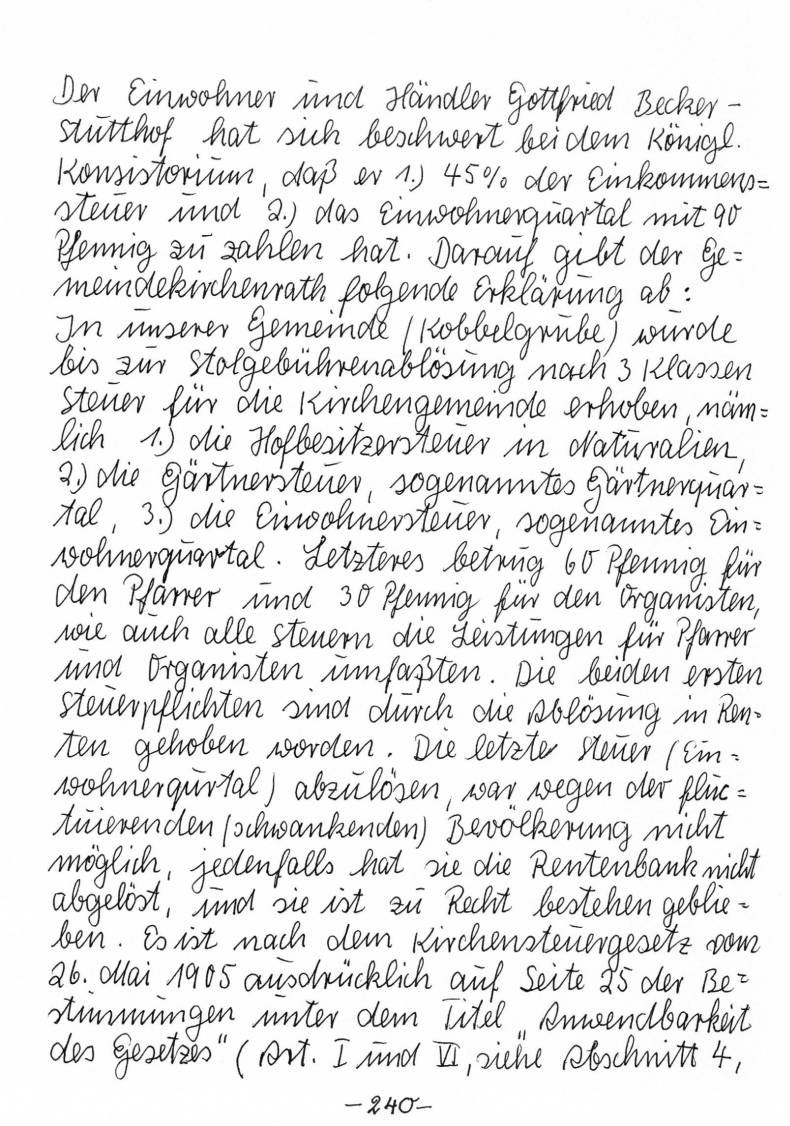 Der Einwohner und Händler Gottfried Becker -
Stutthof hat sich beschwert bei dem Königl.
Konsistorium, daß er 1.) 45% der Einkommens=
steuer und 2.) das Einwohnerquartal mit 90
Pfennig zu zahlen hat. Darauf gibt der Ge=
meindekirchenrath folgende Erklärung ab:
In unserer Gemeinde (Kobbelgrube) wurde
bis zur Stolgebührenablösung nach 3 Klassen
Steuer für die Kirchengemeinde erhoben, näm=
lich 1.) die Hofbesitzersteuer in Naturalien,
2.) die Gärtnersteuer, sogenanntes Gärtnerquar=
tal, 3.) die Einwohnersteuer, sogenanntes Ein=
wohnerquartal. Letzteres betrug 60 Pfennig für
den Pfarrer und 30 Pfennig für den Organisten,
wie auch alle Steuern die Leistungen für Pfarrer
und Organisten umfaßten. Die beiden ersten
Steuerpflichten sind durch die Ablösung in Ren=
ten gehoben worden. Die letzte Steuer (Ein=
wohnerqurtal) abzulösen, war wegen der fluc=
tuierenden (schwankenden) Bevölkerung nicht
möglich, jedenfalls hat sie die Rentenbank nicht
abgelöst, und sie ist zu Recht bestehen geblie=
ben. Es ist nach dem Kirchensteuergesetz vom
26. Mai 1905 ausdrücklich auf Seite 25 der Be=
stimmungen unter dem Titel „Anwendbarkeit
des Gesetzes" (Art. I und VI, siehe Abschnitt 4,
-240-